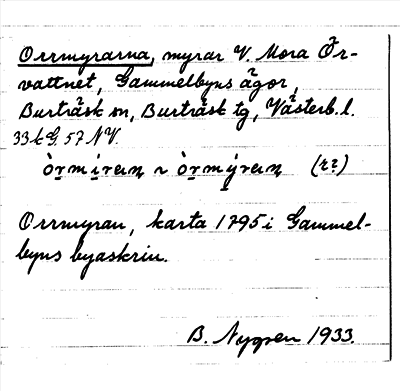 Orrmyrarna, myrar V. Mora Ör-
vattnet, Gammelbyns ägor,
Burträsk sn, Burträsk tg, Västerb. l.
33 k G. 57 NV.
òrmíraɳ ~ òrmýraɳ (r?)
Orrmyran, karta 1795 i Gammel-
byns byaskrin.
B. Nygren 1933.